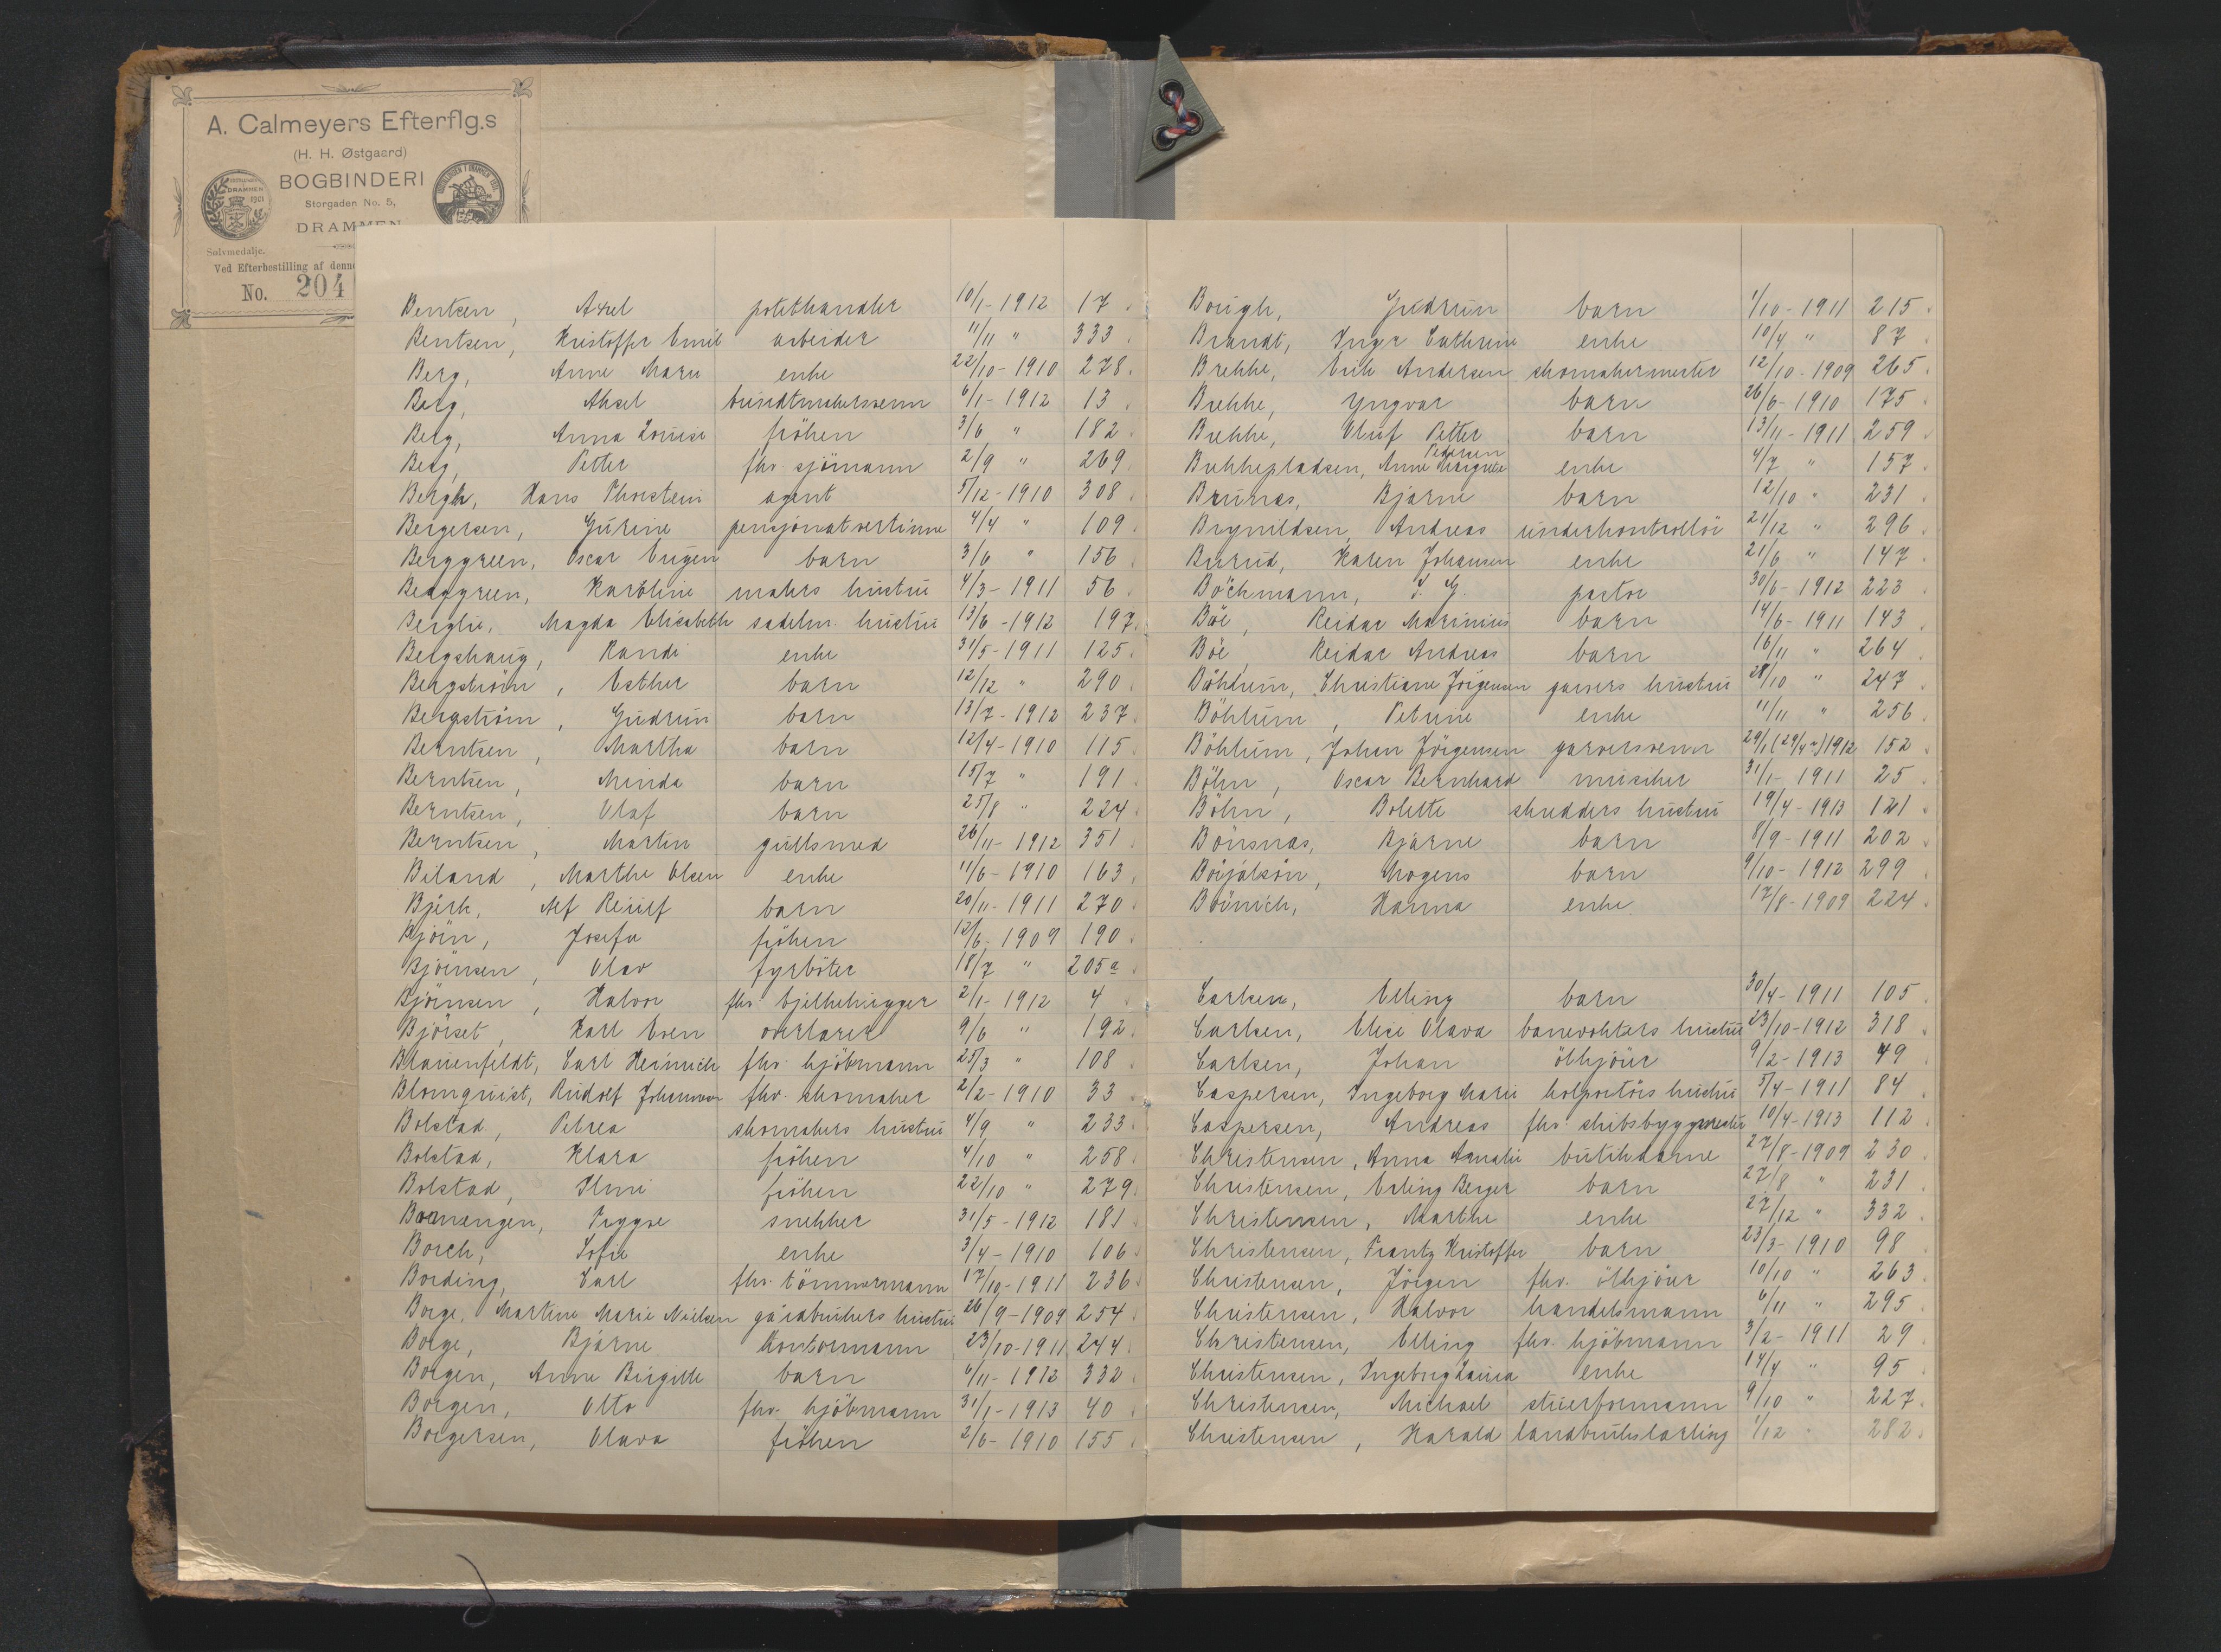 A. Calmeyers Efterflg.s
(H. H. Østgaard)
BOGBINDERI
Storgaden No. 5,
DRAMMEN
Sølvmedalje.
Ved Efterbestilling af denne
No. 204
Bentsen, Axel potethandler 10/1-1912 17.
Bentsen, Kristoffer Emil arbeider 11/11 " 333.
Berg, Anne Marie enke 22/10-1910 278.
Berg, Aksel bundtmakersvenn 6/1-1912 13.
Berg, Anna Louise fröken 3/6 " 182.
Berg, Petter fhv. sjömann 2/9 " 269.
Bergh, Hans Thorstein agent 5/12-1910 308.
Bergersen, Gurine pensjonatvertinne 4/4 " 109.
Berggreen, Oscar Eugen barn 3/6 " 156.
Berggreen, Karoline malers hustru 4/3-1911 56.
Berglie, Magda Elisabeth sadelm. hustru 13/6-1912 197.
Bergshaug, Randi enke 31/5-1911 125.
Bergström, Esther barn 12/12 " 290.
Bergström, Gudrun barn 13/7-1912 237.
Berntsen, Martha barn 12/4-1910 115.
Berntsen, Minda barn 15/7 " 191.
Berntsen, Olaf barn 25/8 " 224.
Berntsen, Martin gullsmed 26/11-1912 351.
Biland, Marthe Olsen enke 11/6-1910 163.
Bjerk, Alf Reiulf barn 20/11-1911 270.
Björn, Josefa fröken 12/6-1909 190.
Björnsen, Olav fyrböter 18/7 " 205a.
Björnsen, Halvor fhv. bjelkehugger 2/1-1912 4.
Björset, Karl Even overlærer 9/6 " 192.
Blauenfeldt, Carl Heinrich fhv. kjöbmann 25/3 " 108.
Blomquist, Rudolf Johannes fhv. skomaker 2/2-1910 33.
Bolstad, Petrea skomakers hustru 4/9 " 233.
Bolstad, Klara fröken 4/10 " 258.
Bolstad, fröken 22/10 " 279.
Bomengen, Trygve snekker 31/5-1912 181.
Borch, Sofie enke 3/4-1910 106.
Bording, Carl fhv. tömmermann 17/10-1911 236.
Borge, Martine Marie Nielsen gårdbrukers hustru 26/9-1909 254.
Borge, Bjarne kontormann 23/10-1911 244.
Borgen, Anne Birgitte barn 6/11-1912 332.
Borgen, Otto fhv. kjöbmann 31/1-1913 40.
Borgersen, Olava fröken 2/6-1910 155.
Gudrun barn 1/10-1911 215.
Brandt, Inger Cathrine enke 10/4 " 87.
Brekke, Erik Andersen skomakermester 12/10-1909 265.
Brekke, Yngvar barn 26/6-1910 175.
Brekke, Oluf Petter barn 13/11-1911 259.
Brekkepladsen, Anne Margrete Pedersen enke 4/7 " 157.
Brunæs, Bjarne barn 12/10 " 231.
Brynildsen, Andreas underkontrollör 21/12 " 296.
Burud, Karen Johansen enke 21/6 " 147.
Böckmann, pastor 30/6-1912 223.
Böe, Reidar Marinius barn 14/6-1911 143.
Böe, Reidar Andreas barn 16/11 " 264.
Böhlum, Christiane Jörgensen garvers hustru 28/10 " 247.
Böhlum, Petrine enke 11/11 " 256.
Böhlum, Johan Jörgensen garversvenn 29/1 (29/4 ") 1912 152.
Böhn, Oscar Bernhard musiker 31/1-1911 25.
Böhn, Bolette skredders hustru 19/4-1913 121.
Bönsnæs, Bjarne barn 8/9-1911 202.
Mogens barn 9/10-1912 299.
Hanna enke 17/8-1909 224.
Carlsen, Elling barn 30/4-1911 105.
Carlsen, Elise Olava banevokters hustru 23/10-1912 318.
Carlsen, Johan ölkjörer 9/2-1913 49.
Caspersen, Ingeborg Marie kolportörs hustru 5/4-1911 84.
Caspersen, Andreas fhv. skibsbyggmester 10/4-1913 112.
Christensen, Anna Amalie butikdame 27/8-1909 230.
Christensen, Erling Berger barn 27/8 " 231.
Christensen, Marthe enke 27/12 " 332.
Christensen, Frantz Kristoffer barn 23/3-1910 98.
Christensen, Jörgen fhv. ölkjörer 10/10 " 263.
Christensen, Halvor handelsmann 6/11 " 295.
Christensen, Elling fhv. kjöbmann 3/2-1911 29.
Christensen, Ingeborg Laura enke 14/4 " 95.
Christensen, Michael stuerformann 9/10 " 227.
Christensen, Harald landbrukslærling 1/12 " 282.